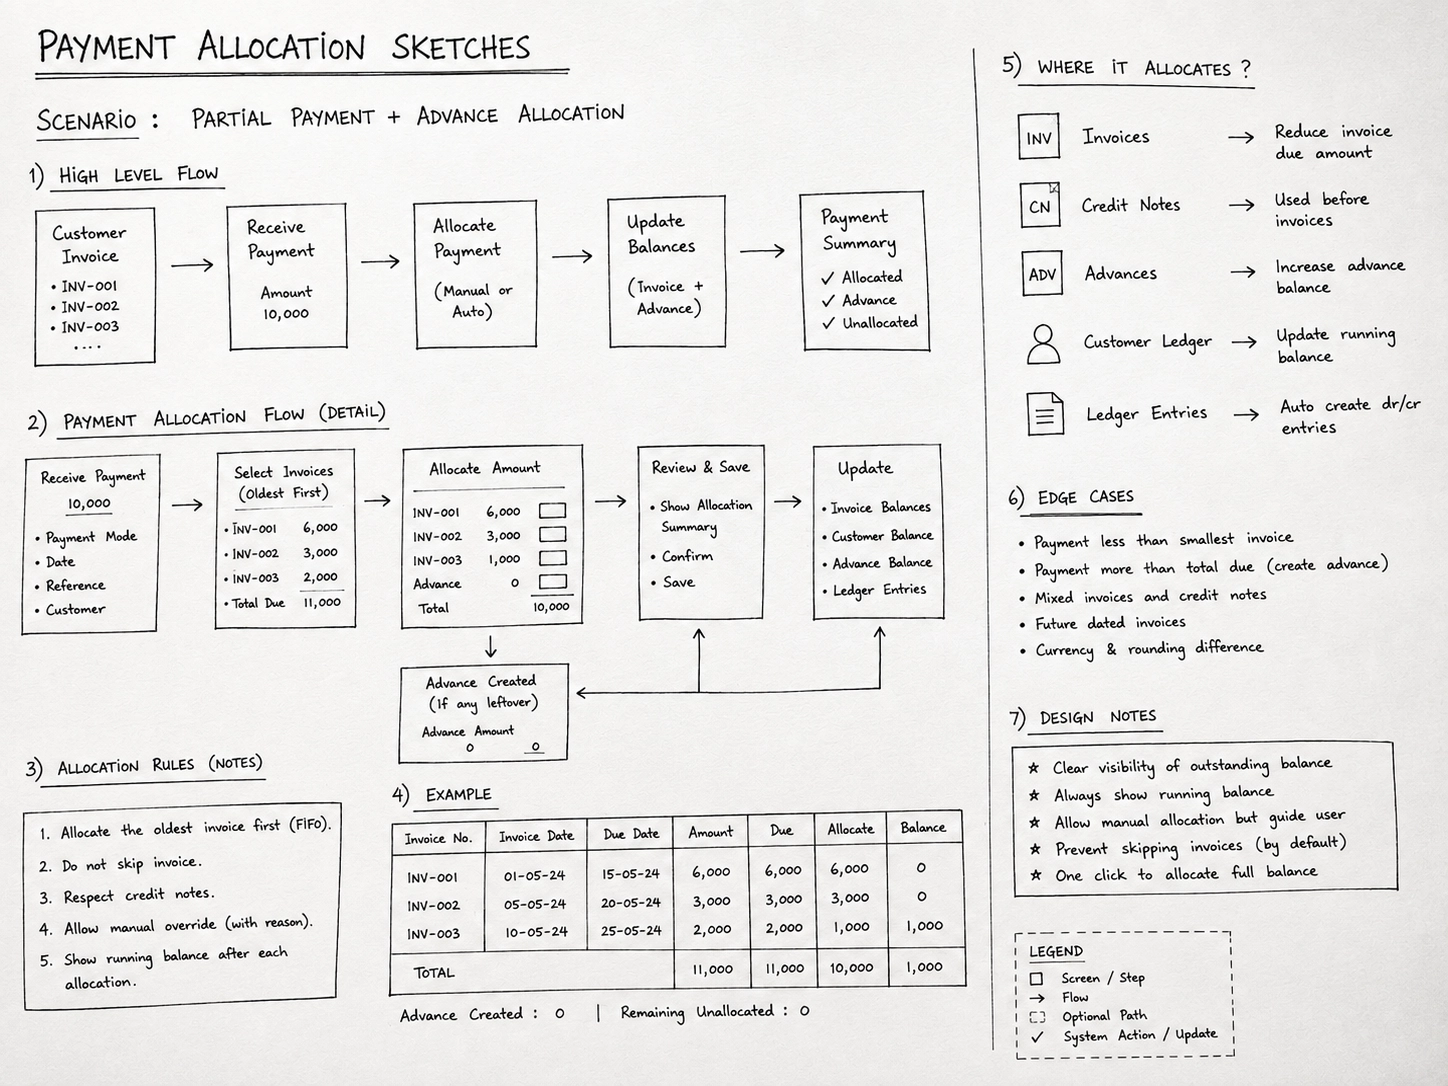 PAYMENT ALLOCATION SKETCHES
SCENARIO : PARTIAL PAYMENT + ADVANCE ALLOCATION
1) HIGH LEVEL FLOW
Customer
Invoice
• INV-001
• INV-002
• INV-003
....
Receive
Payment
Amount
10,000
Allocate
Payment
(Manual or
Auto)
Update
Balances
(Invoice +
Advance)
Payment
Summary
✓ Allocated
✓ Advance
✓ Unallocated
2) PAYMENT ALLOCATION FLOW (DETAIL)
Receive Payment
10,000
• Payment Mode
• Date
• Reference
• Customer
Select Invoices
(Oldest First)
• INV-001 6,000
• INV-002 3,000
• INV-003 2,000
• Total Due 11,000
Allocate Amount
INV-001 6,000
INV-002 3,000
INV-003 1,000
Advance 0
Total 10,000
Review & Save
• Show Allocation
Summary
• Confirm
• Save
Update
• Invoice Balances
• Customer Balance
• Advance Balance
• Ledger Entries
Advance Created
(If any leftover)
Advance Amount
0 0
3) ALLOCATION RULES (NOTES)
1. Allocate the oldest invoice first (FIFO).
2. Do not skip invoice.
3. Respect credit notes.
4. Allow manual override (with reason).
5. Show running balance after each
allocation.
4) EXAMPLE
Invoice No. Invoice Date Due Date Amount Due Allocate Balance
INV-001 01-05-24 15-05-24 6,000 6,000 6,000 0
INV-002 05-05-24 20-05-24 3,000 3,000 3,000 0
INV-003 10-05-24 25-05-24 2,000 2,000 1,000 1,000
TOTAL 11,000 11,000 10,000 1,000
Advance Created : 0 | Remaining Unallocated : 0
5) WHERE IT ALLOCATES ?
INV Invoices → Reduce invoice
due amount
CN Credit Notes → Used before
invoices
ADV Advances → Increase advance
balance
Customer Ledger → Update running
balance
Ledger Entries → Auto create dr/cr
entries
6) EDGE CASES
• Payment less than smallest invoice
• Payment more than total due (create advance)
• Mixed invoices and credit notes
• Future dated invoices
• Currency & rounding difference
7) DESIGN NOTES
☆ Clear visibility of outstanding balance
☆ Always show running balance
☆ Allow manual allocation but guide user
☆ Prevent skipping invoices (by default)
☆ One click to allocate full balance
LEGEND
Screen / Step
→ Flow
Optional Path
✓ System Action / Update